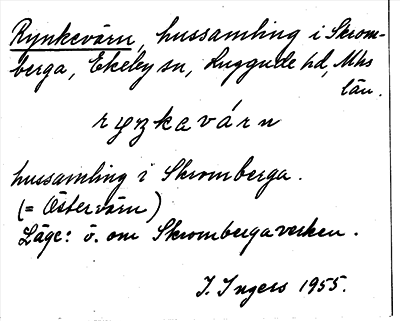 Rynkevärn, hussamling i Skrom-
berga, Ekeby sn, Luggude hd, Mhs
län.
ryŋkavárn
hussamling i Skromberga.
(= Östervärn)
Läge: ö. om Skrombergaverken.
I. Ingers 1955.